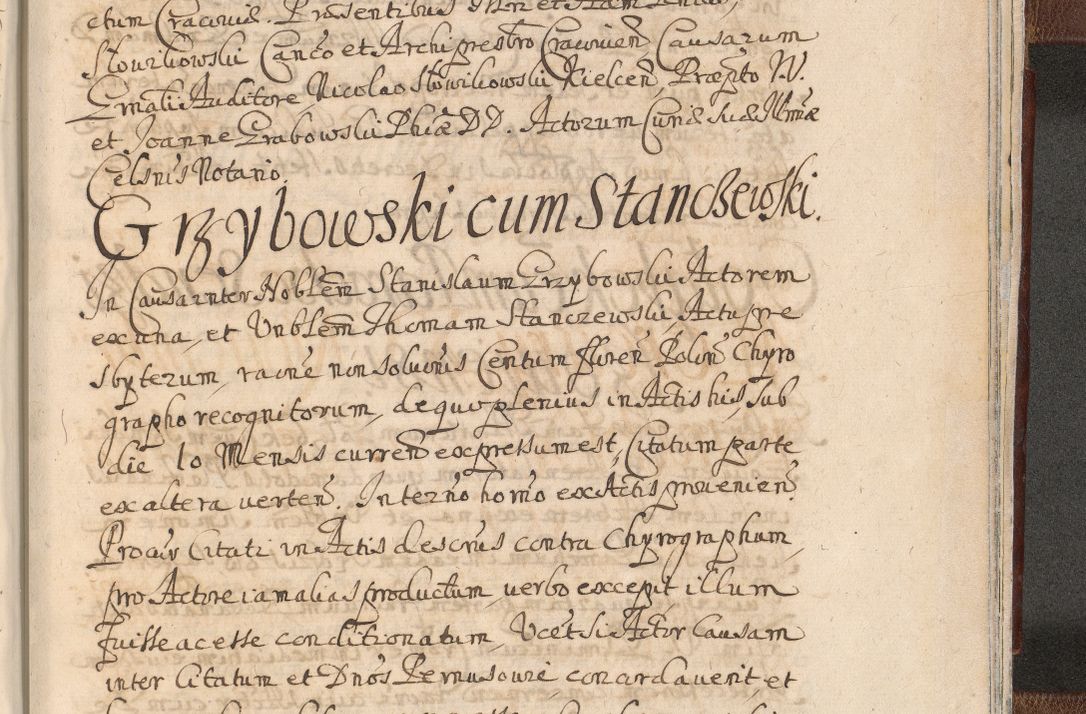 ctum Cracoviae. Praesentibus
Słowikowski Canco et Archipresbro Cracovien Causarum
Grnali Auditore Nicolao Słowikowski Kielcen, Praepto W.
et Joanne Grabowski Phiae DD. Actorum Curiae Suae Illmae
Celsnis Notario.
Grzybowski cum Stanczewski.
In Causa inter Noblem Stanislaum Grzybowski Actorem
ex una, et Unblem Thomam Stanczewski, Actu prae
sbyterum, raone non solutonis Centum floren Polon Chyro
grapho recognitorum, de quo plenius in Actis his, sub
die 10 Mensis curren expressum est, Citatum parte
ex altera verten. In terno homo ex Actis provenien
Procur Citati in Actis descrus contra Chyrographum
pro Actore iam alias productum, verbo excepit illum
fuisse ac esse conditionatum, Ucet si Actor Causam
inter Citatum et Dnos Pernusowie concordaverit, et